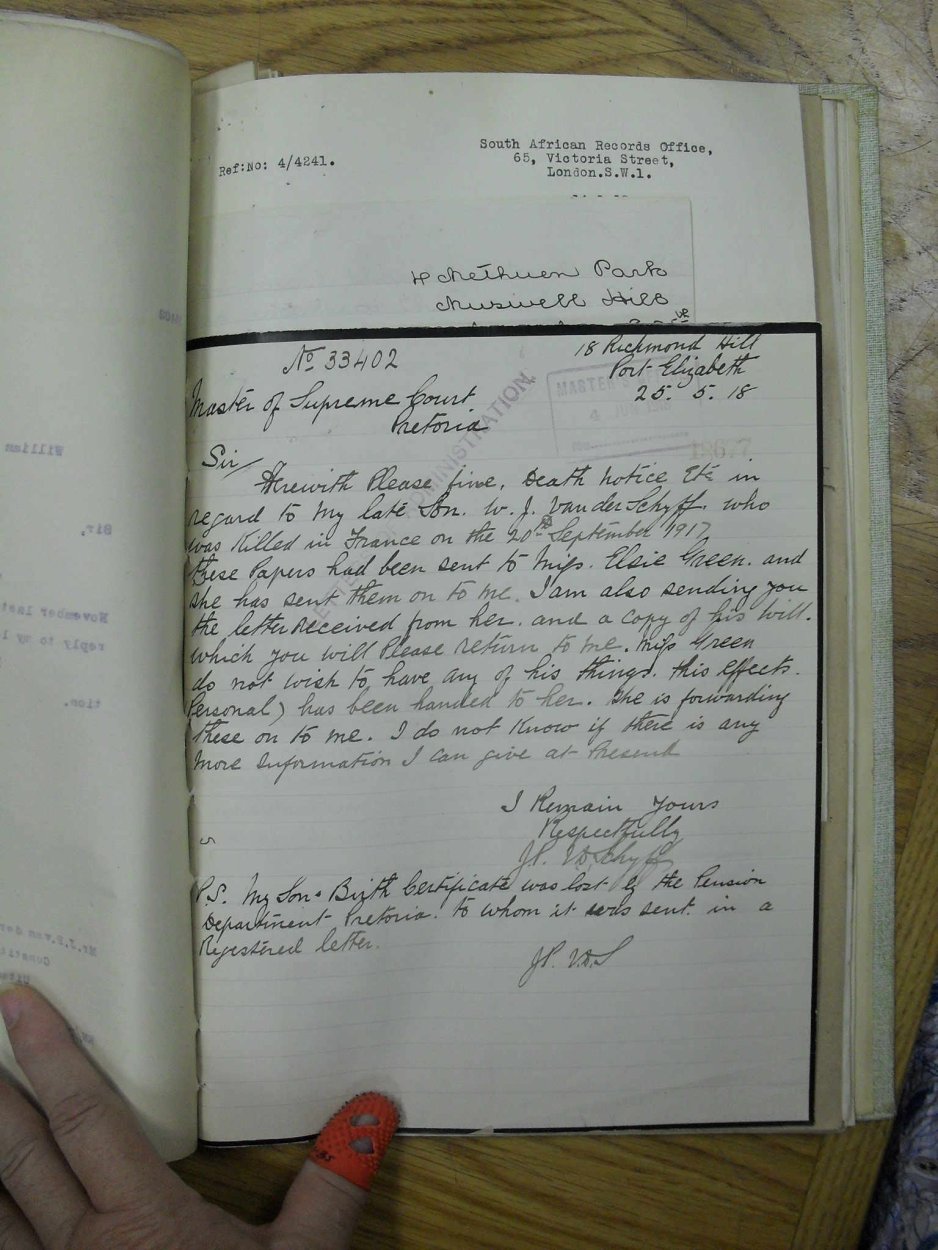 Ref:No: 4/4241.
South African Records Office,
65, Victoria Street,
London.S.W.1.
4 Methuen Park
Muswell Hill
No 33402
18 Richmond Hill
Port Elizabeth
25. 5. 18
Master of Supreme Court
Pretoria
MASTER'S
4 JUN
18677
ADMINISTRATION
Sir/
Herewith Please fine, Death Notice Etc in
regard to My late Son. W. J. Van der Schyff who
was Killed in France on the 20th September 1917
These Papers had been sent to Miss. Elsie Green. and
she has sent them on to me. I am also sending you
the letter received from her. and a copy of his Will.
which you will Please return to me. Miss Green
do not wish to have any of his things. this effects.
Personal) has been handed to her. She is forwarding
these on to me. I do not Know if there is any
More Information I can give at Present
I Remain Yours
Respectfully
J.P. V.D. Schyff
P.S. My Son's Birth Certificate was lost by the Pension
Department Pretoria. to whom it was sent. in a
Registered letter.
J.P. V.D.S
William
Sir,
November last
reply to my l
tion.
Mr.J.P.van der